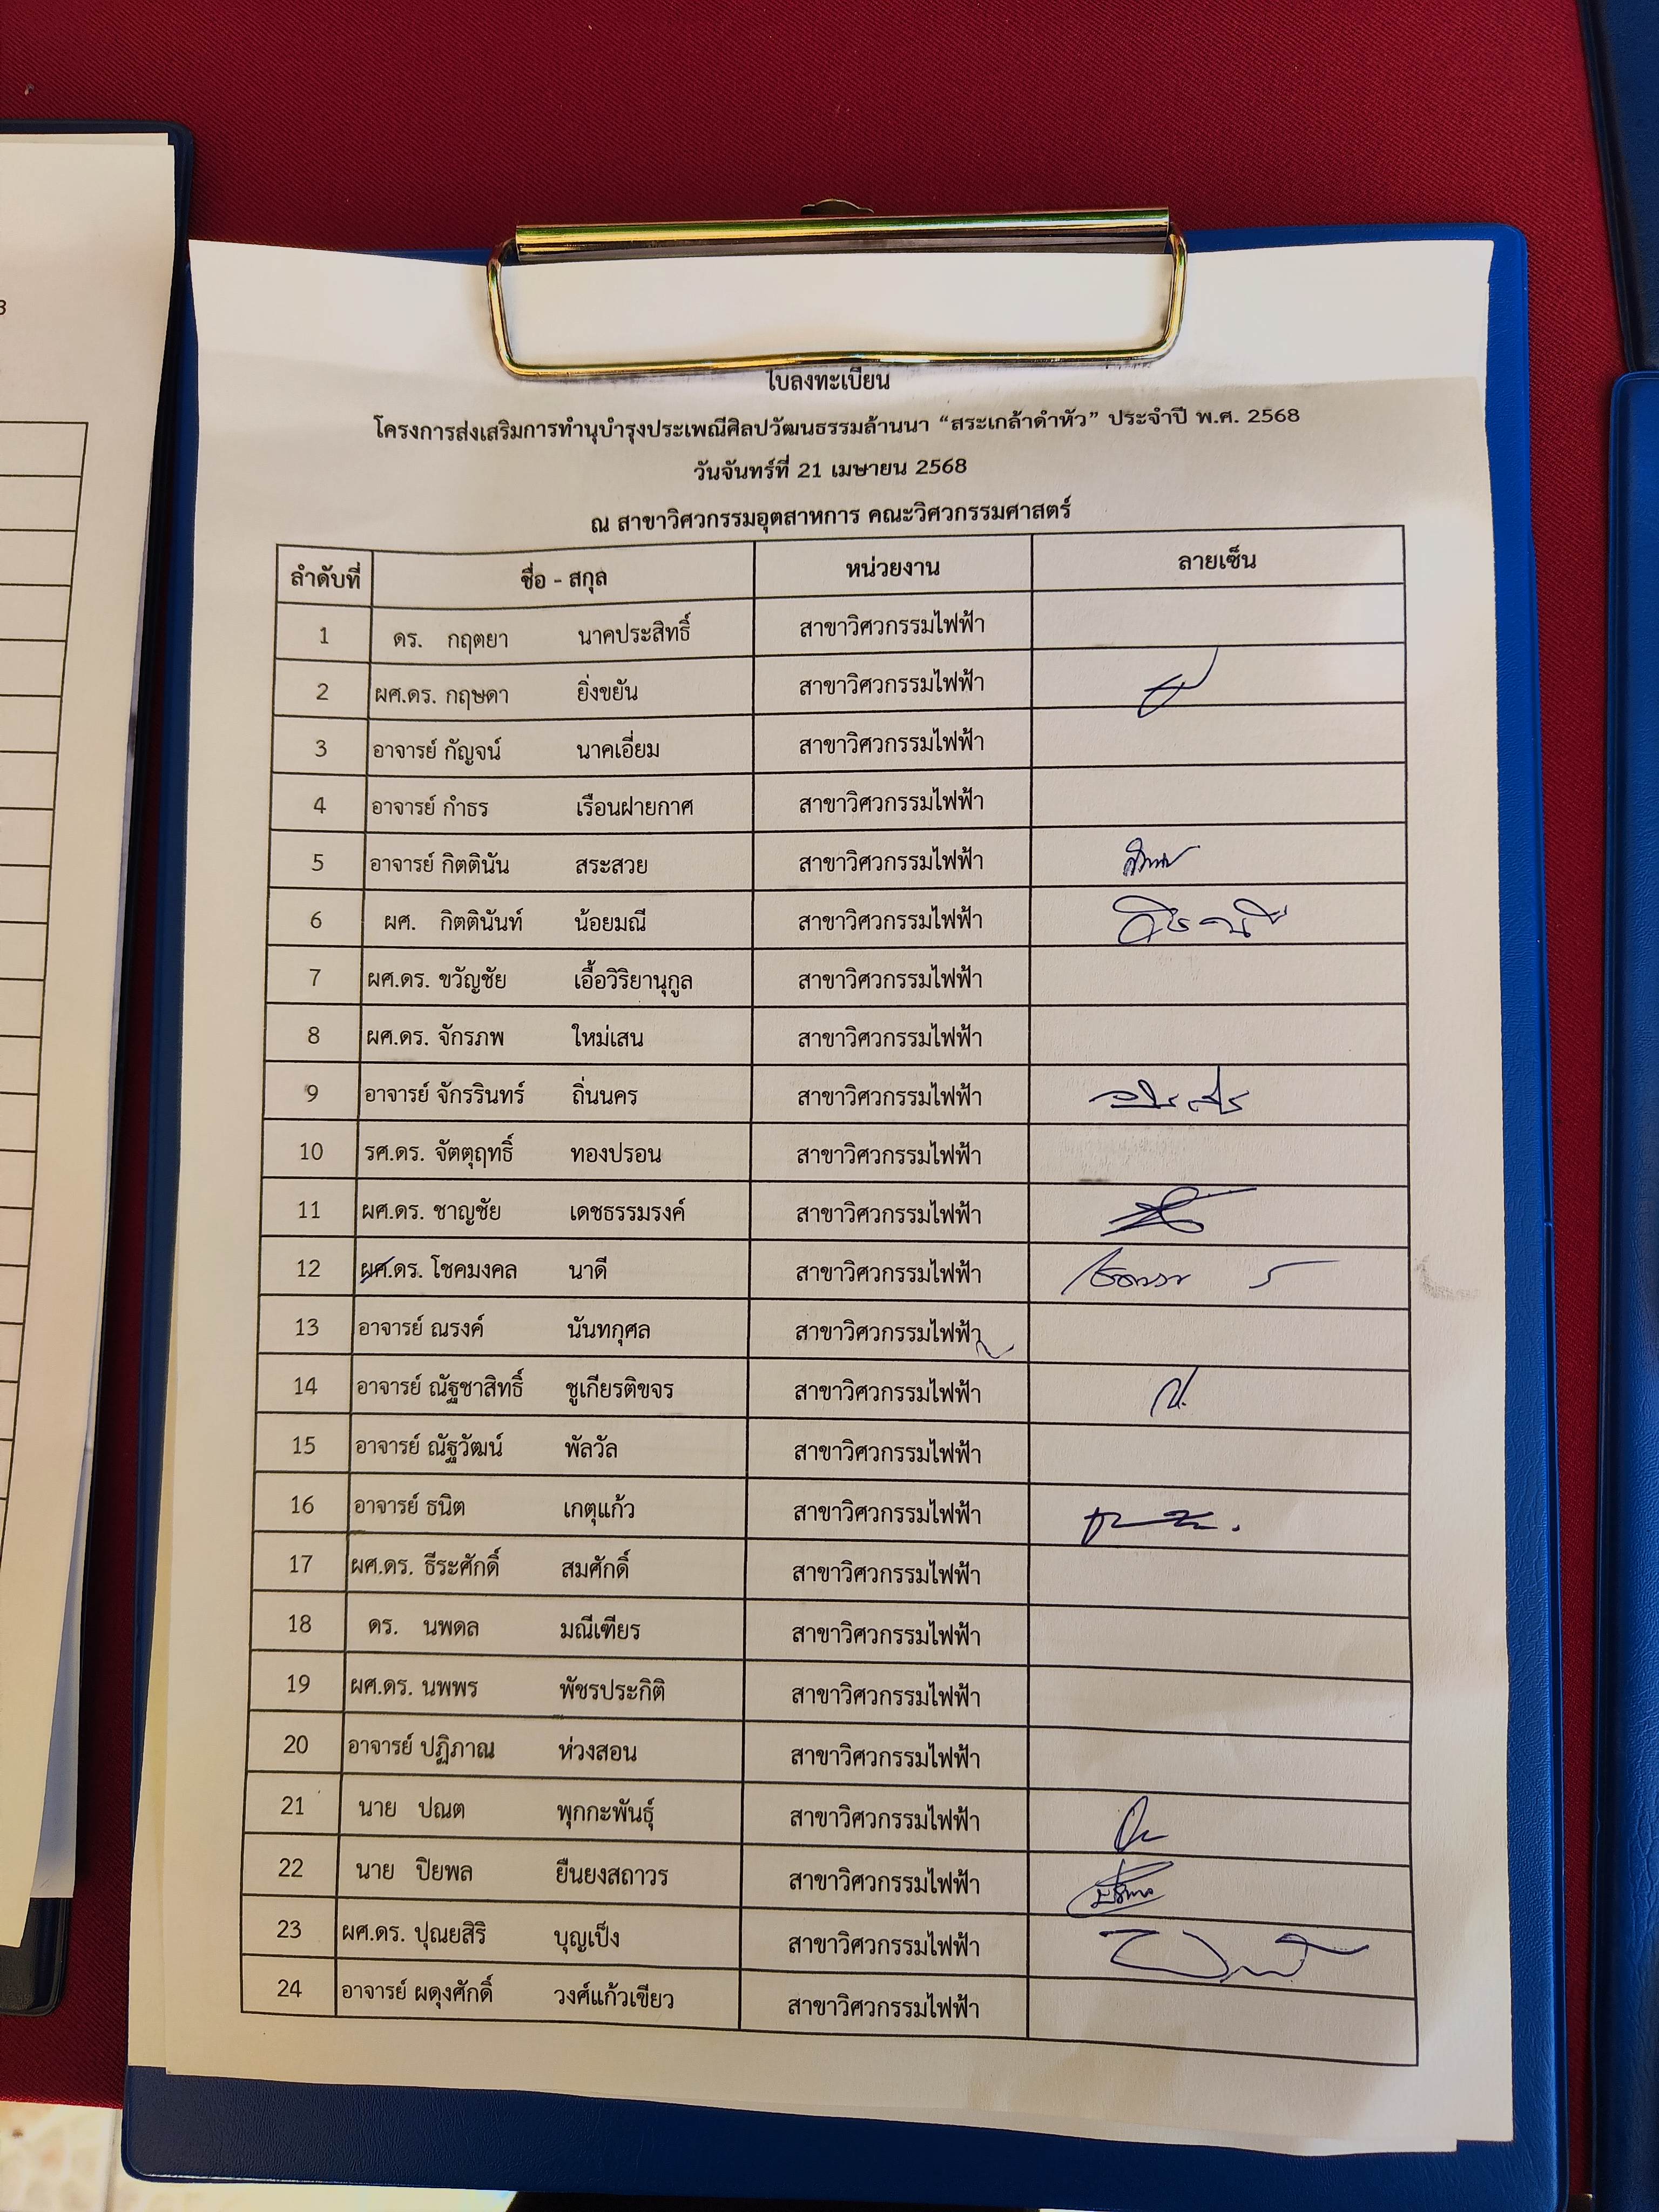 ใบลงทะเบียน
โครงการส่งเสริมการทำนุบำรุงประเพณีศิลปวัฒนธรรมล้านนา “สระเกล้าดำหัว” ประจำปี พ.ศ. 2568
วันจันทร์ที่ 21 เมษายน 2568
ณ สาขาวิศวกรรมอุตสาหการ คณะวิศวกรรมศาสตร์
ลำดับที่ ชื่อ - สกุล หน่วยงาน ลายเซ็น
1 ดร. กฤตยา นาคประสิทธิ์ สาขาวิศวกรรมไฟฟ้า
2 ผศ.ดร. กฤษดา ยิ่งขยัน สาขาวิศวกรรมไฟฟ้า
3 อาจารย์ กัญจน์ นาคเอี่ยม สาขาวิศวกรรมไฟฟ้า
4 อาจารย์ กำธร เรือนฝายกาศ สาขาวิศวกรรมไฟฟ้า
5 อาจารย์ กิตตินัน สระสวย สาขาวิศวกรรมไฟฟ้า
6 ผศ. กิตตินันท์ น้อยมณี สาขาวิศวกรรมไฟฟ้า
7 ผศ.ดร. ขวัญชัย เอื้อวิริยานุกูล สาขาวิศวกรรมไฟฟ้า
8 ผศ.ดร. จักรภพ ใหม่เสน สาขาวิศวกรรมไฟฟ้า
9 อาจารย์ จักรรินทร์ ถิ่นนคร สาขาวิศวกรรมไฟฟ้า
10 รศ.ดร. จัตตุฤทธิ์ ทองปรอน สาขาวิศวกรรมไฟฟ้า
11 ผศ.ดร. ชาญชัย เดชธรรมรงค์ สาขาวิศวกรรมไฟฟ้า
12 ผศ.ดร. โชคมงคล นาดี สาขาวิศวกรรมไฟฟ้า
13 อาจารย์ ณรงค์ นันทกุศล สาขาวิศวกรรมไฟฟ้า
14 อาจารย์ ณัฐชาสิทธิ์ ชูเกียรติขจร สาขาวิศวกรรมไฟฟ้า
15 อาจารย์ ณัฐวัฒน์ พัลวัล สาขาวิศวกรรมไฟฟ้า
16 อาจารย์ ธนิต เกตุแก้ว สาขาวิศวกรรมไฟฟ้า
17 ผศ.ดร. ธีระศักดิ์ สมศักดิ์ สาขาวิศวกรรมไฟฟ้า
18 ดร. นพดล มณีเฑียร สาขาวิศวกรรมไฟฟ้า
19 ผศ.ดร. นพพร พัชรประกิติ สาขาวิศวกรรมไฟฟ้า
20 อาจารย์ ปฏิภาณ ห่วงสอน สาขาวิศวกรรมไฟฟ้า
21 นาย ปณต พุกกะพันธุ์ สาขาวิศวกรรมไฟฟ้า
22 นาย ปิยพล ยืนยงสถาวร สาขาวิศวกรรมไฟฟ้า
23 ผศ.ดร. ปุณยสิริ บุญเป็ง สาขาวิศวกรรมไฟฟ้า
24 อาจารย์ ผดุงศักดิ์ วงศ์แก้วเขียว สาขาวิศวกรรมไฟฟ้า